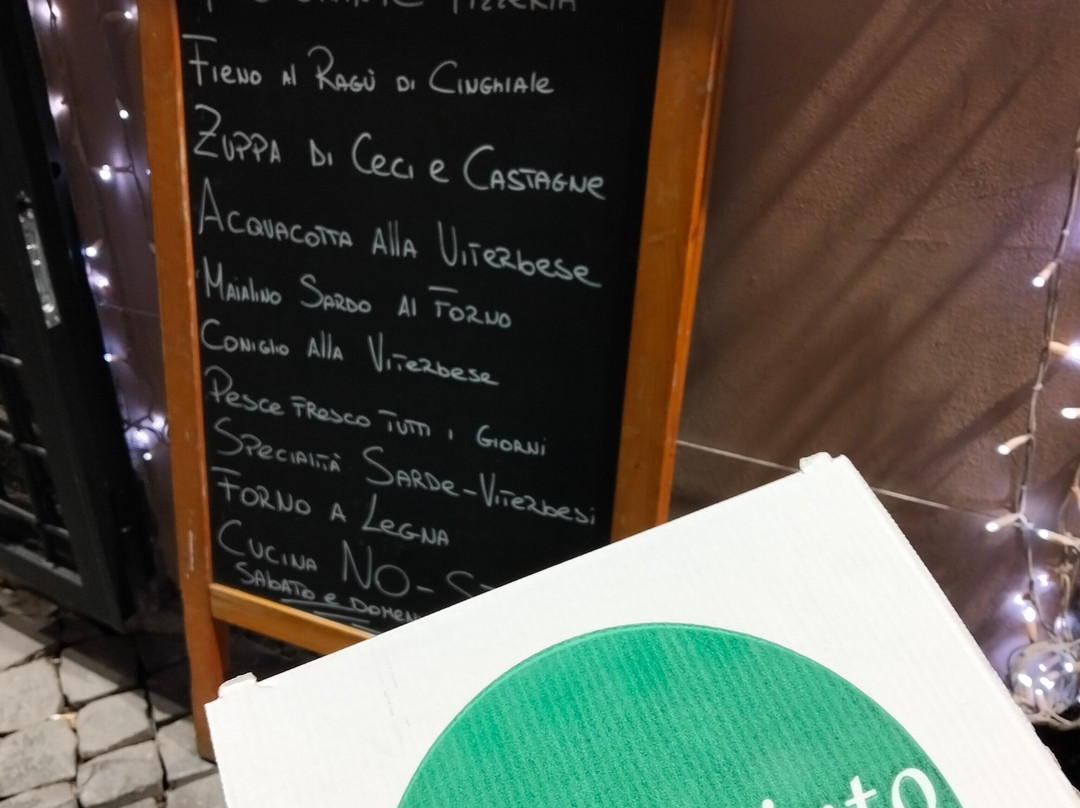 Pizzeria
Fieno al Ragù di Cinghiale
Zuppa di Ceci e Castagne
Acquacotta alla Viterbese
Maialino Sardo al Forno
Coniglio alla Viterbese
Pesce Fresco Tutti i Giorni
Specialità Sarde-Viterbesi
Forno a Legna
Cucina NO-S
Sabato e Domen